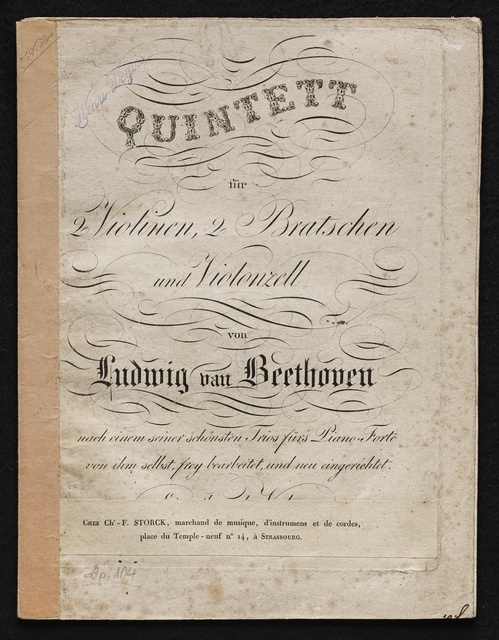 QUINTETT
für
2 Violinen, 2 Bratschen
und Violonzell
von
Ludwig van Beethoven
nach einem seiner schönsten Trios fürs Piano-Forte
von ihm selbst, frey bearbeitet, und neu eingerichtet.
Chez Ch.-F. STORCK, marchand de musique, d'instrumens et de cordes,
place du Temple-neuf n° 14, à Strasbourg.
Op. 104